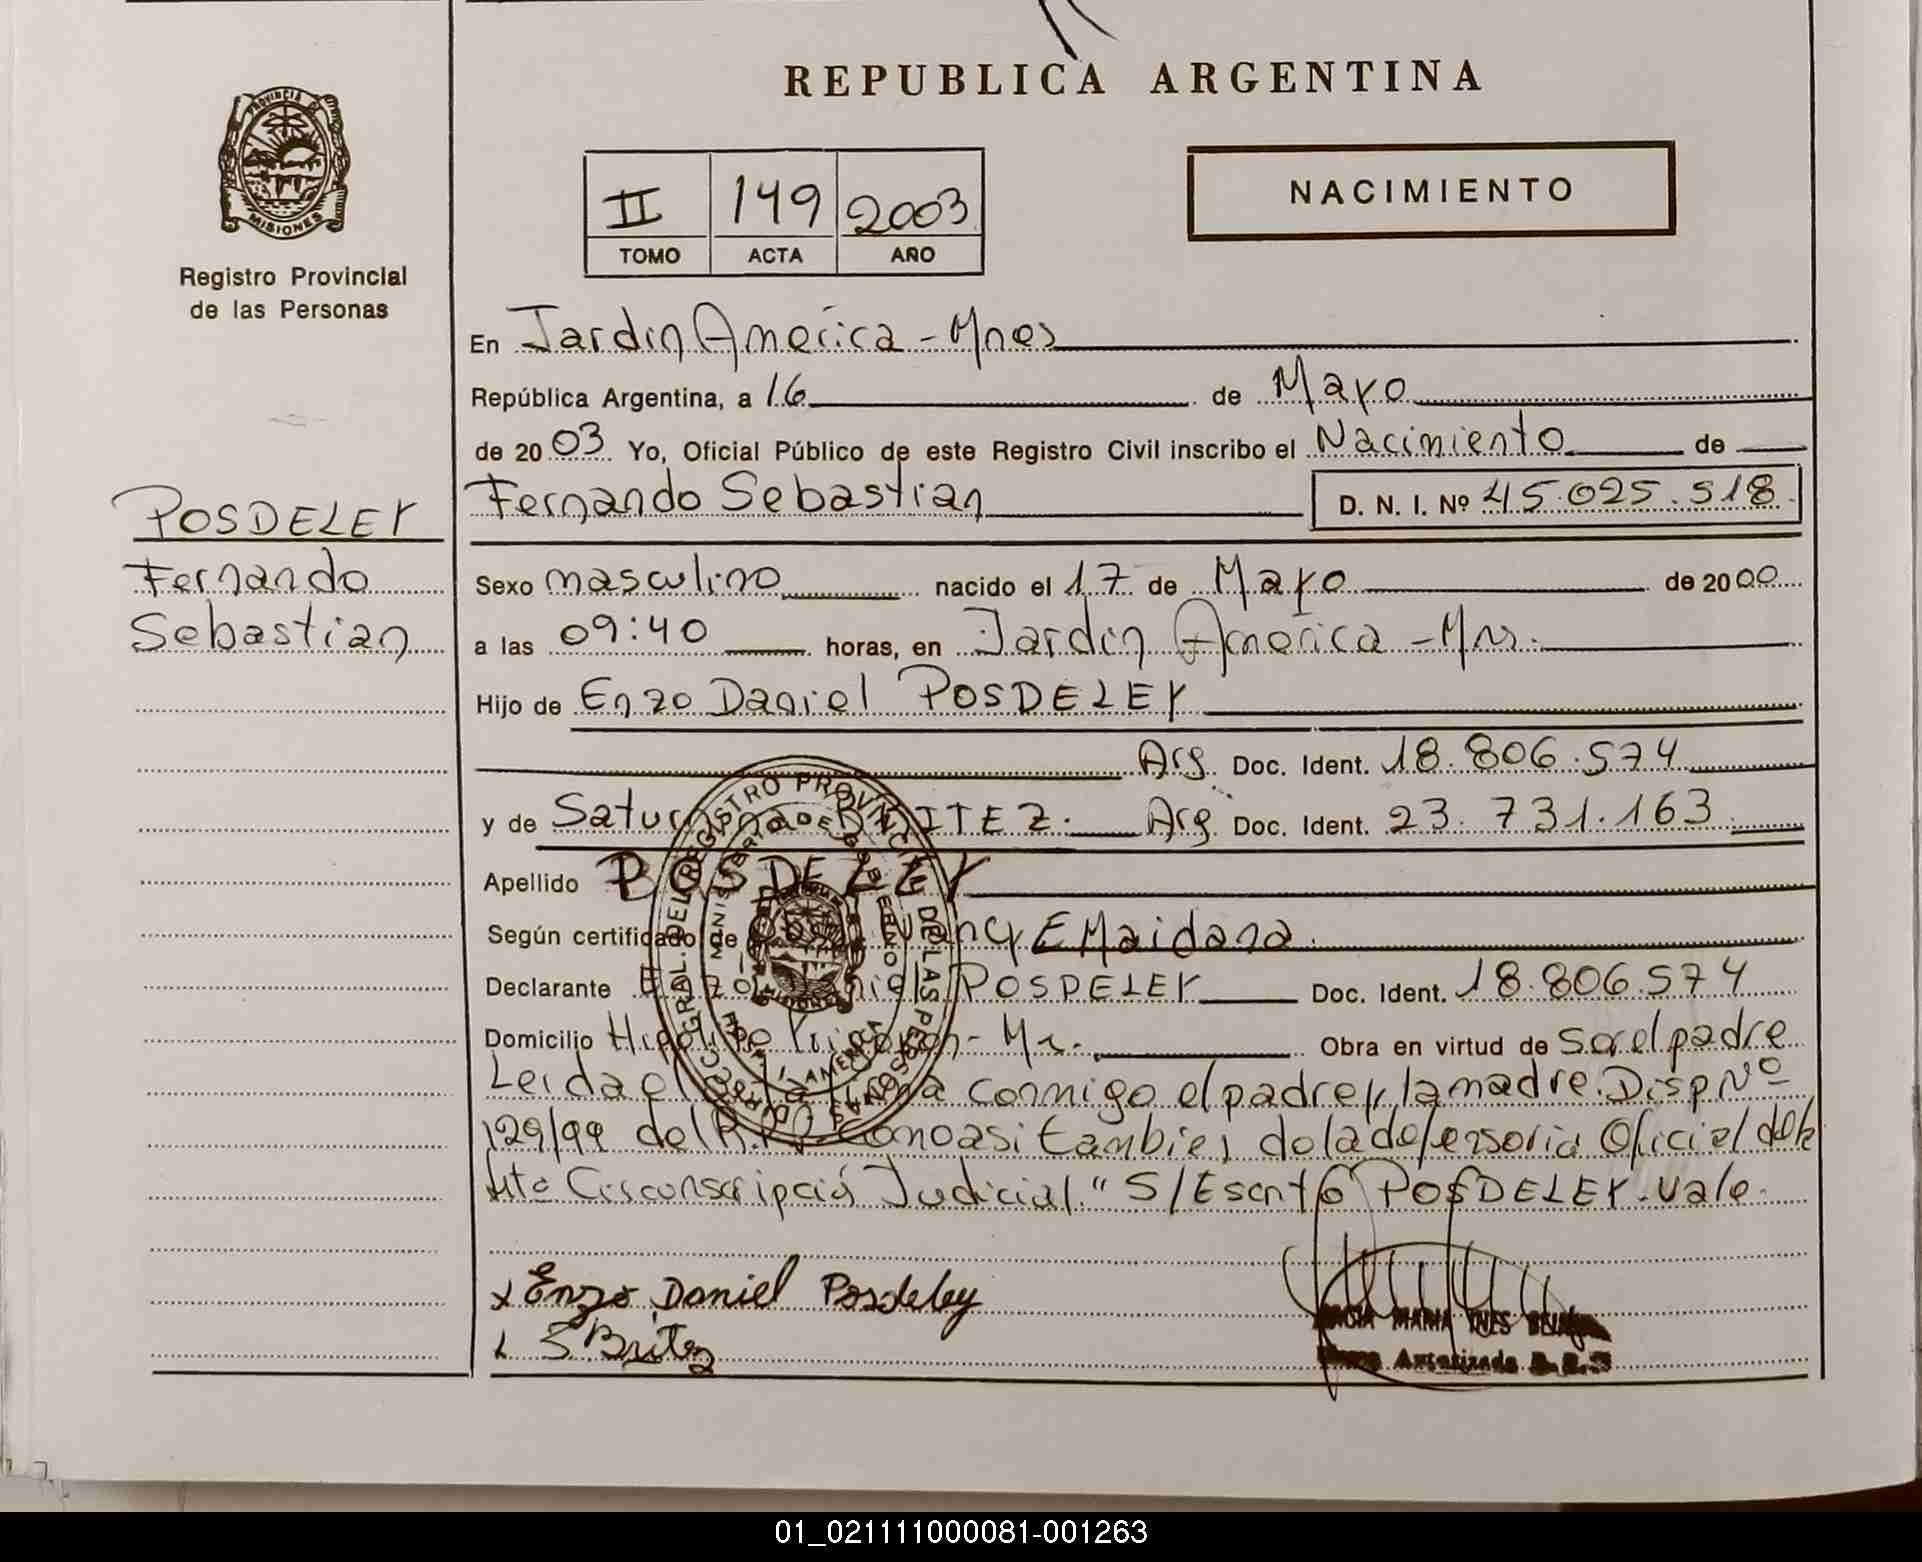 REPUBLICA ARGENTINA
PROVINCIA DE
MISIONES
Registro Provincial
de las Personas
II 149 2003
TOMO ACTA AÑO
NACIMIENTO
En Jardin America - Mnes
República Argentina, a 16 de Mayo
de 2003 Yo, Oficial Público de este Registro Civil inscribo el Nacimiento de
Fernando Sebastian D. N. I. Nº 45.025.518
POSDELEY
Fernando
Sebastian
Sexo masculino nacido el 17 de Mayo de 2000
a las 09:40 horas, en Jardin America - Mns.
Hijo de Enzo Daniel POSDELEY
Arg. Doc. Ident. 18.806.574
y de Arg. Doc. Ident. 23.731.163
Apellido POSDELEY
Según certificado de Nancy E Maidana
Declarante POSDELEY Doc. Ident. 18.806.574
Domicilio Obra en virtud de Ser el padre
Leida el conmigo el padre y la madre. Disp Nº
129/99 del R.P.P. Como asi tambien de la defensoria Oficial de la
Circunscripció Judicial." S/Escrito POSDELEY. Vale.
x Enzo Daniel Posdeley
S Britez
MARIA INES
Autorizada
REGISTRO PROVINCIAL DE LAS PERSONAS
01_021111000081-001263